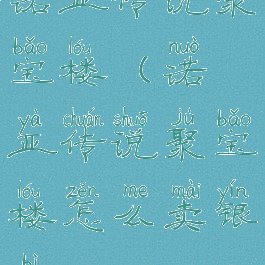 诺亚传说聚
bǎo lóu ( nuò
宝楼(诺
yà chuán shuō jù bǎo
亚传说聚宝
lóu zěn me mài yín
楼怎么卖银